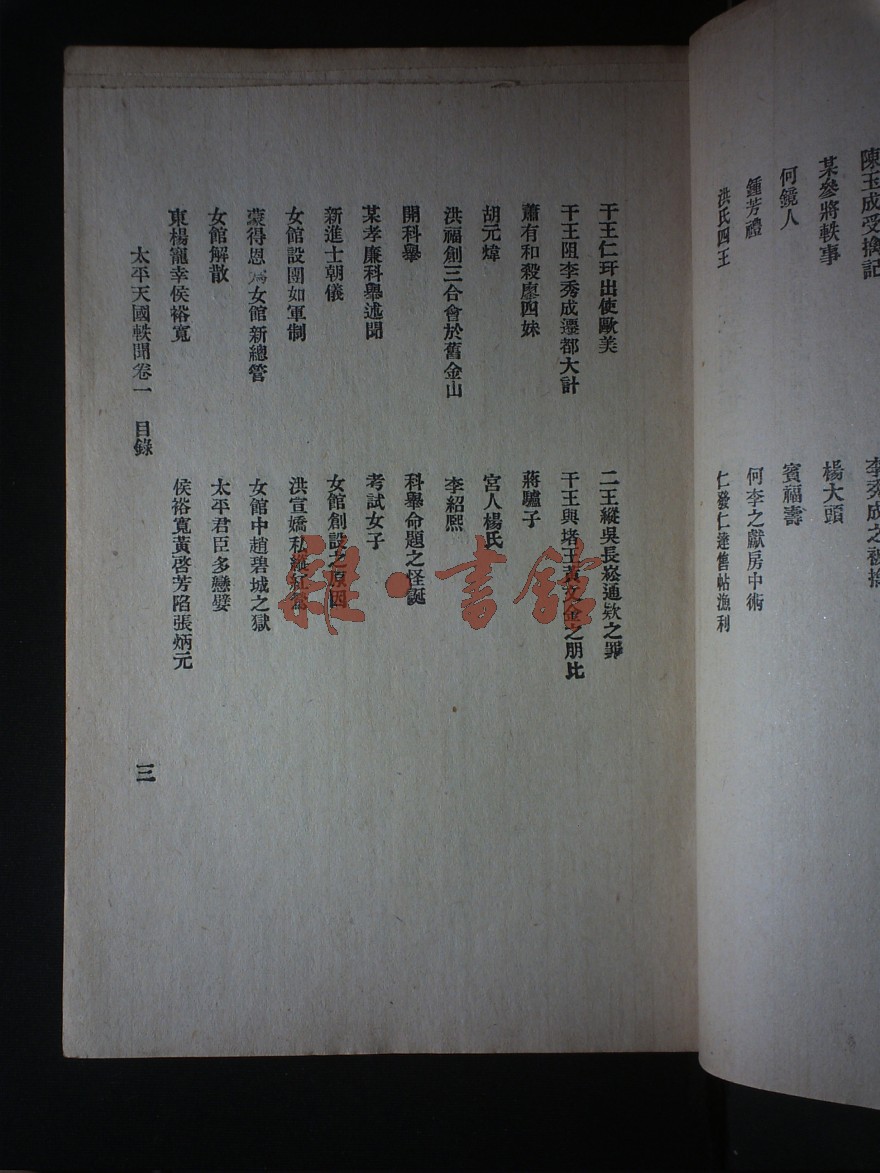 陳玉成受擒記
李秀成之被擒
某參將軼事
楊大頭
何鏡人
賓福壽
鍾芳禮
何李之獻房中術
洪氏四王
仁發仁達售帖漁利
干王仁玕出使歐美
二王縱吳長崧通欵之罪
干王阻李秀成遷都大計
干王與堵王黃文金之朋比
蕭有和殺廖四妹
蔣驢子
胡元煒
宮人楊氏
洪福創三合會於舊金山
李紹熙
開科舉
科舉命題之怪誕
某孝廉科舉述聞
考試女子
新進士朝儀
女館創設之原因
女館設團如軍制
洪宣嬌私
蒙得恩為女館新總管
女館中趙碧城之獄
女館解散
太平君臣多戀嬖
東楊寵幸侯裕寬
侯裕寬黃啓芳陷張炳元
太平天國軼聞卷一 目錄
三
雜·書館